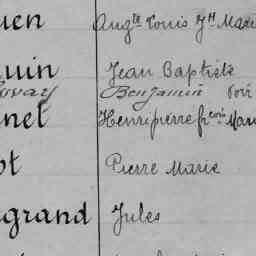 uen Aug.te Louis J.h Marie
uin Jean Baptiste
Benjamin Voir
nel Henri pierre fr.cois Marie
ot Pierre Marie
grand Jules